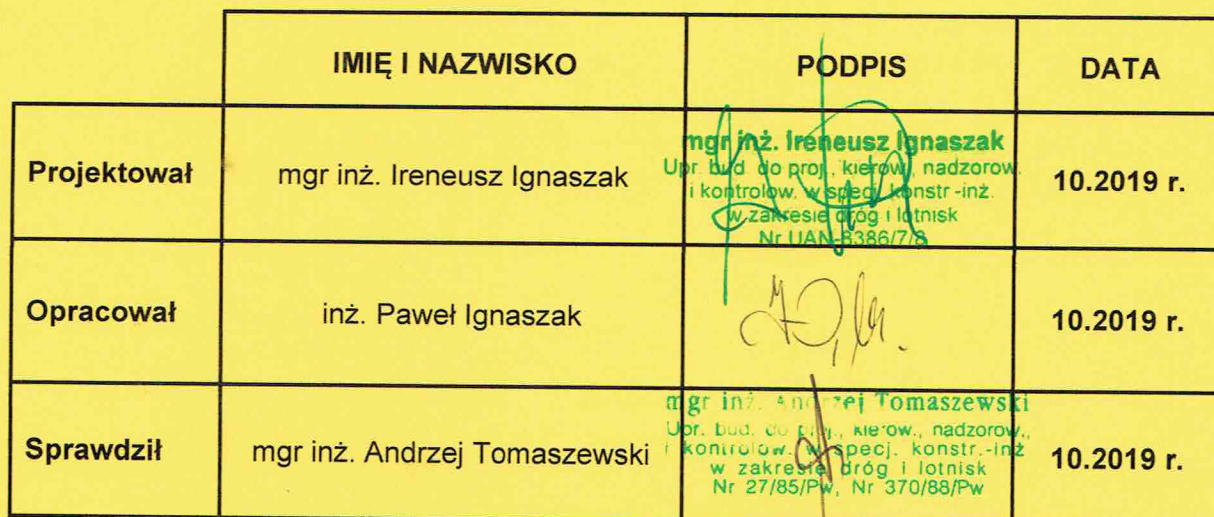 IMIĘ I NAZWISKO PODPIS DATA
Projektował mgr inż. Ireneusz Ignaszak 10.2019 r.
mgr inż. Ireneusz Ignaszak
Upr. bud. do proj., kierow., nadzorow.
i kontrolow. w specj. konstr.-inż.
w zakresie dróg i lotnisk
Nr UAN-8386/7/8
Opracował inż. Paweł Ignaszak 10.2019 r.
Sprawdził mgr inż. Andrzej Tomaszewski 10.2019 r.
mgr inż. Andrzej Tomaszewski
Upr. bud. do proj., kierow., nadzorow.,
i kontrolow. w specj. konstr.-inż
w zakresie dróg i lotnisk
Nr 27/85/Pw, Nr 370/88/Pw